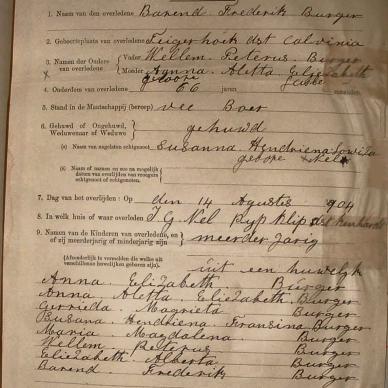 1. Naam van den overledene Barend Frederik Burger
2. Geboorteplaats van overledene Teigerhoek dst Calvinia
3. Namen der Ouders van overledene { Vader Wellem Peterus Burger
Moeder Agnna Aletta Elizabeth
geboore
4. Ouderdom van overledene 66 jaren maanden
5. Stand in de Maatschappij (beroep) vee Boer
6. Gehuwd of Ongehuwd, Weduwnaar of Weduwe } gehuwd
(a) Naam van nagelaten echtgenoot Susanna Hendriena Lowiza
geboore Nel
(b) Naam of namen en zoo na mogelijk datum van overlijden van vroegere echtgenoot of echtgenooten.
7. Dag van het overlijden: Op den 14 Agustus 1904
8. In welk huis of waar overleden J G Nel Rypklip dst Kenhardt
9. Namen van de Kinderen van overledene, en of zij meerderjarig of minderjarig zijn } meerder jarig
(Afzonderlijk te vermelden die welke uit verschillende huwelijken geboren zijn).
uit een huwelyk
Anna Elizabeth Burger
Anna Aletta Elizabeth Burger
Gerrieda Magrieta Burger
Susana Hendriena Fransina Burger
Maria Magdalena Burger
Wellem Peterus Burger
Elizabeth Alberta Burger
Barend Frederik Burger